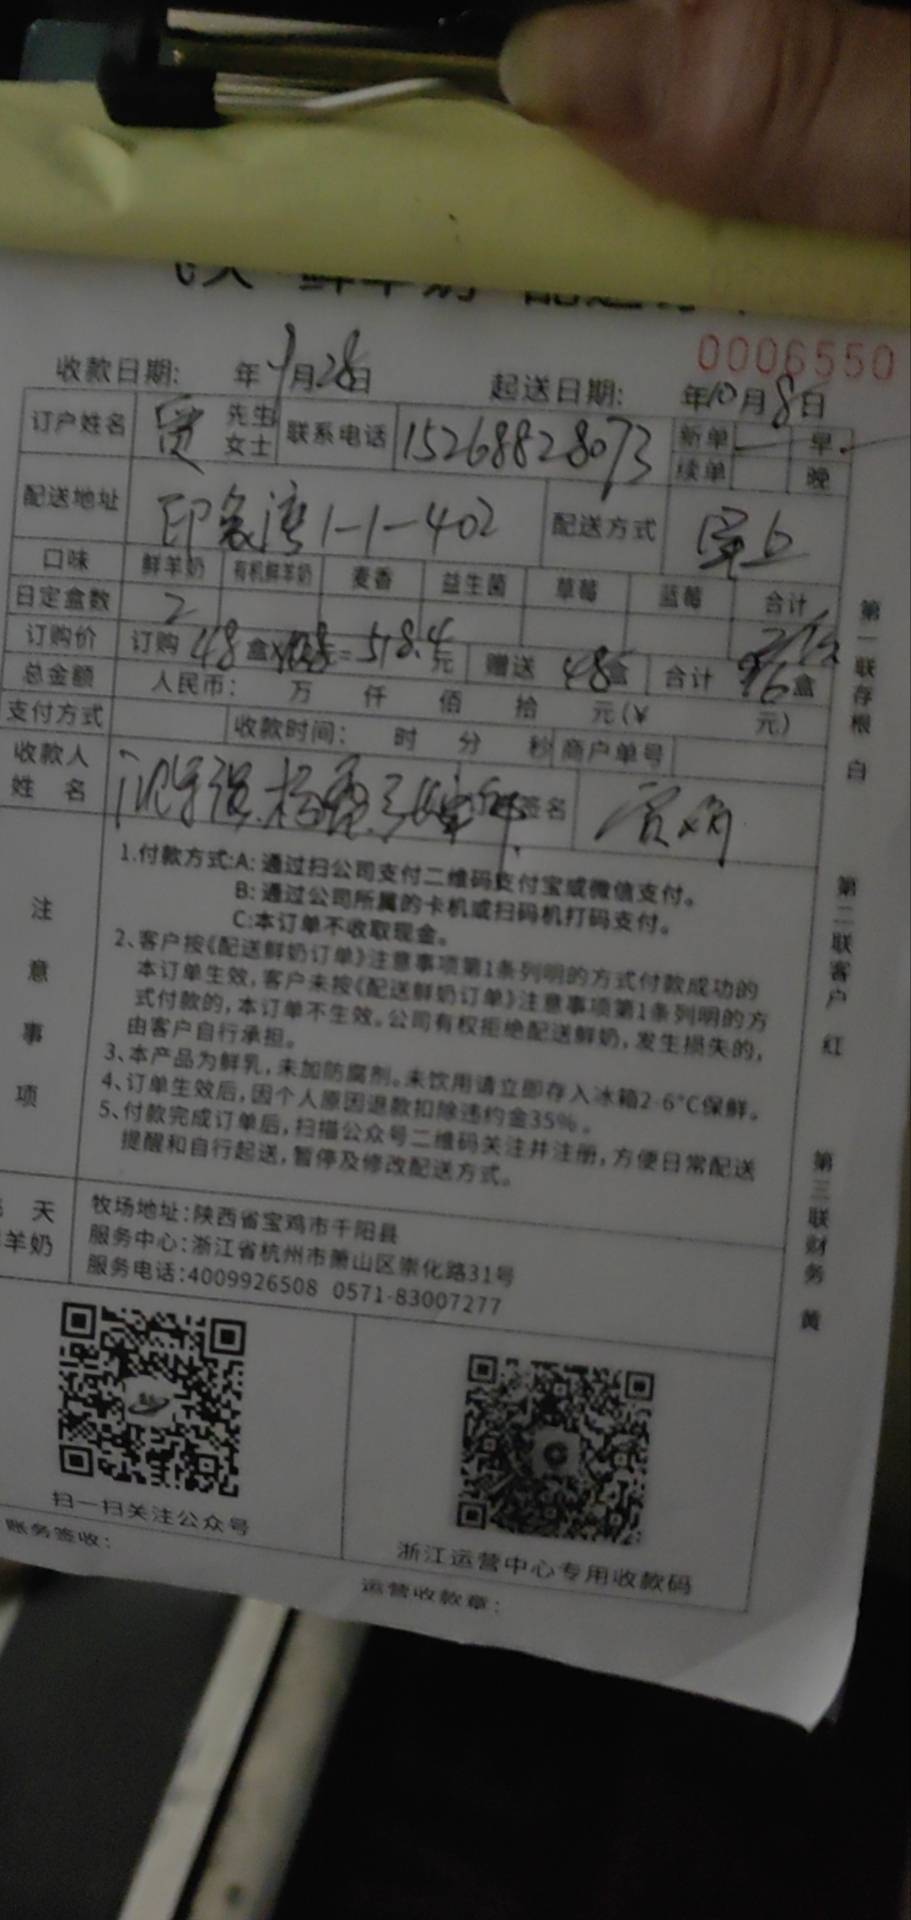 0006550
收款日期: 年9月28日 起送日期: 年10月8日
订户姓名 贾 先生 女士 联系电话 15268828073 新单 早
续单 晚
配送地址 印象湾1-1-402 配送方式
口味 鲜羊奶 有机鲜羊奶 麦香 益生菌 草莓 蓝莓 合计
日定盒数 2
订购价 订购 48盒×10.8=518.4元 赠送 48盒 合计 96盒
总金额 人民币: 万 仟 佰 拾 元(¥ 元)
支付方式 收款时间: 时 分 秒 商户单号
收款人
姓 名 签名
注意事项
1.付款方式:A: 通过扫公司支付二维码支付宝或微信支付。
B: 通过公司所属的卡机或扫码机打码支付。
C:本订单不收取现金。
2、客户按《配送鲜奶订单》注意事项第1条列明的方式付款成功的
本订单生效, 客户未按《配送鲜奶订单》注意事项第1条列明的方
式付款的, 本订单不生效。公司有权拒绝配送鲜奶, 发生损失的,
由客户自行承担。
3、本产品为鲜乳, 未加防腐剂。未饮用请立即存入冰箱2-6°C保鲜。
4、订单生效后, 因个人原因退款扣除违约金35%。
5、付款完成订单后, 扫描公众号二维码关注并注册, 方便日常配送
提醒和自行起送, 暂停及修改配送方式。
天
羊奶
牧场地址: 陕西省宝鸡市千阳县
服务中心: 浙江省杭州市萧山区崇化路31号
服务电话:4009926508 0571-83007277
扫一扫关注公众号
浙江运营中心专用收款码
账务签收:
运营收款章:
第一联存根 白
第二联客户 红
第三联财务 黄